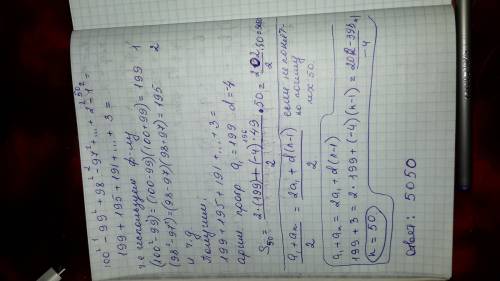 100² - 99² + 98² - 97² + ... + 2² - 1² =
199 + 195 + 191 + ... + 3 =
т.е используем ф-лу
(100² - 99²) = (100 - 99)(100 + 99) = 199 1
(98² - 97²) = (98 - 97)(98 + 97) = 195 2
и т.д
Получим:
199 + 195 + 191 + ... + 3 =
арифм прогр a₁ = 199 d = -4
S₅₀ = (2·(199) + (-4)·49)/2 · 50 = 202/2 · 50 = 5050
(a₁ + aₙ)/2 = (2a₁ + d(n-1))/2 если не понят-
но почему
n = 50
a₁ + aₙ = 2a₁ + d(n-1)
199 + 3 = 2·199 + (-4)(n-1)
n = 50
Ответ: 5050